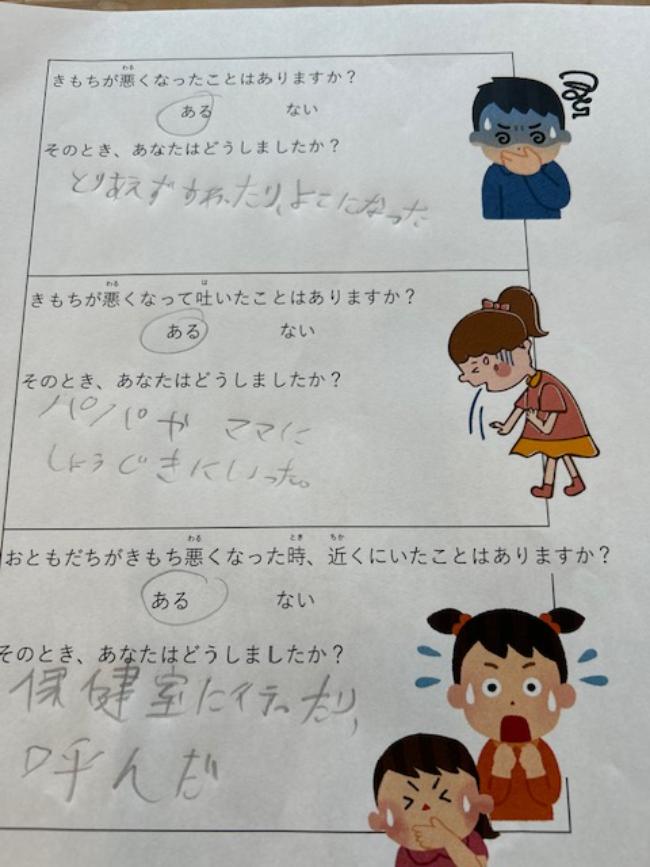 きもちが悪くなったことはありますか？
ある ない
そのとき、あなたはどうしましたか？
とりあえずすわったり、よこになった
きもちが悪くなって吐いたことはありますか？
ある ない
そのとき、あなたはどうしましたか？
パパや ママに
しょうじきにいった。
おともだちがきもち悪くなった時、近くにいたことはありますか？
ある ない
そのとき、あなたはどうしましたか？
保健室に行ったり、
呼んだ